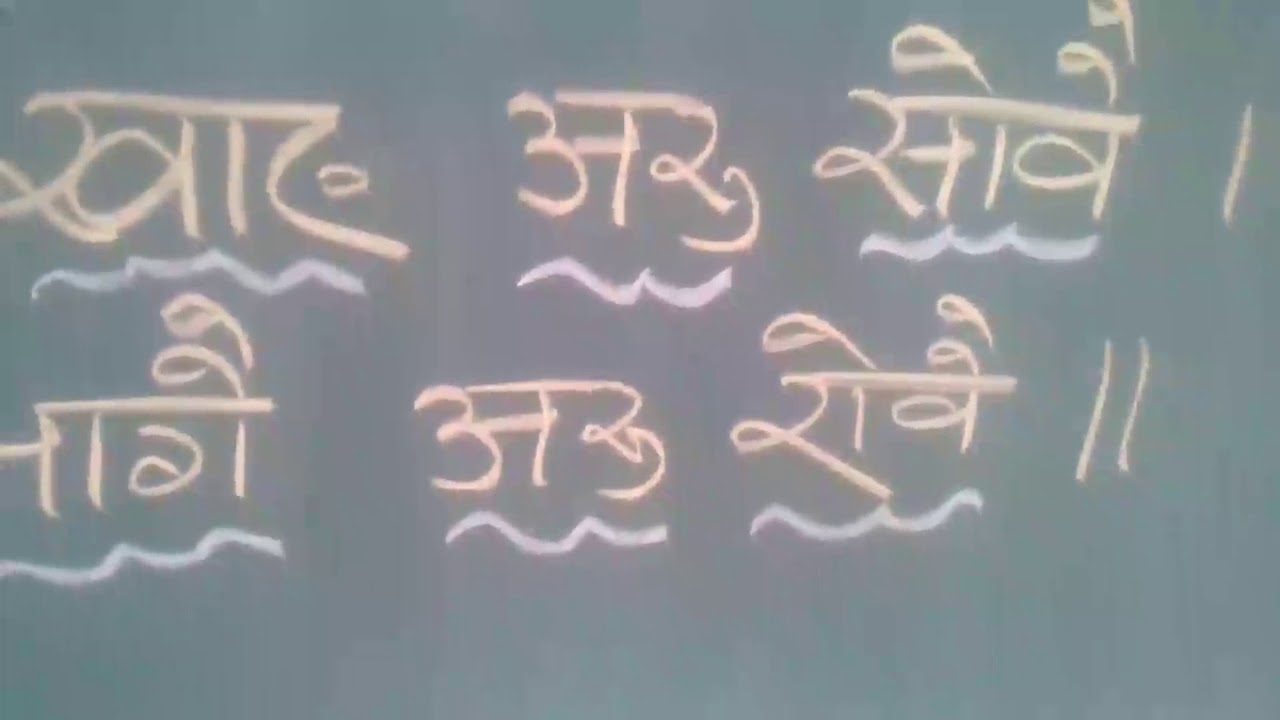 खाए अरु सोवै ।
जागै अरु रोवै ॥